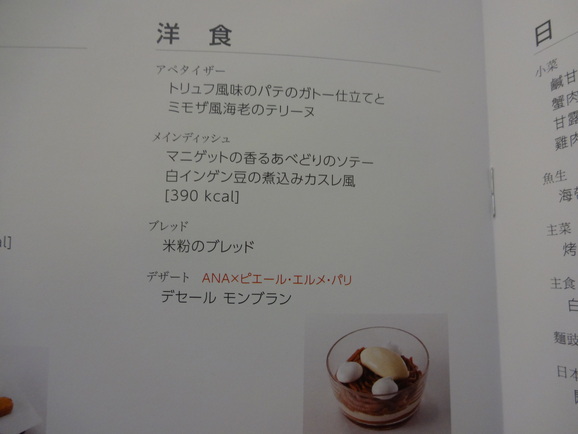 洋食
アペタイザー
トリュフ風味のパテのガトー仕立てと
ミモザ風海老のテリーヌ
メインディッシュ
マニゲットの香るあべどりのソテー
白インゲン豆の煮込みカスレ風
[390 kcal]
ブレッド
米粉のブレッド
デザート ANA×ピエール・エルメ・パリ
デセール モンブラン
al]
日
小菜
鹹甘
蟹肉
甘露
雞肉
魚生
海
主菜
烤
主食
白
麵豉
日本